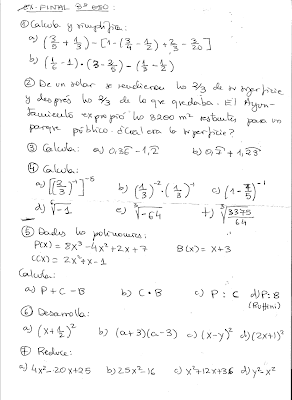 EX-FINAL 3º ESO:
① Calcula y simplifica:
a) (3/5 + 1/3) - [1 - (3/4 - 1/2) + 2/3 - 3/20]
b) (1/5 - 1) · (3 - 2/5) - (1/3 - 2)
② De un solar se vendieron los 2/3 de su superficie
y después los 2/3 de lo que quedaba. El Ayun-
tamiento expropió los 3200 m² restantes para un
parque público. ¿Cuál era la superficie?
③ Calcula: a) 0,36 - 1,2 b) 0,7 + 1,23
④ Calcula:
a) [(2/3)⁻¹]⁻⁵ b) (1/3)⁻² · (1/3)⁻¹ c) (1 - 4/5)⁻¹
d) √-1 e) ³√-64 f) ³√3375/64
⑤ Dados los polinomios:
P(x) = 8x³ - 4x² + 2x + 7 B(x) = x + 3
C(x) = 2x² + x - 1
Calcula:
a) P + C - B b) C · B c) P : C d) P : B
(Ruffini)
⑥ Desarrolla:
a) (x + 1/2)² b) (a + 3)(a - 3) c) (x - y)² d) (2x + 1)²
⑦ Reduce:
a) 4x² - 20x + 25 b) 25x² - 16 c) x² + 12x + 36 d) y² - x²